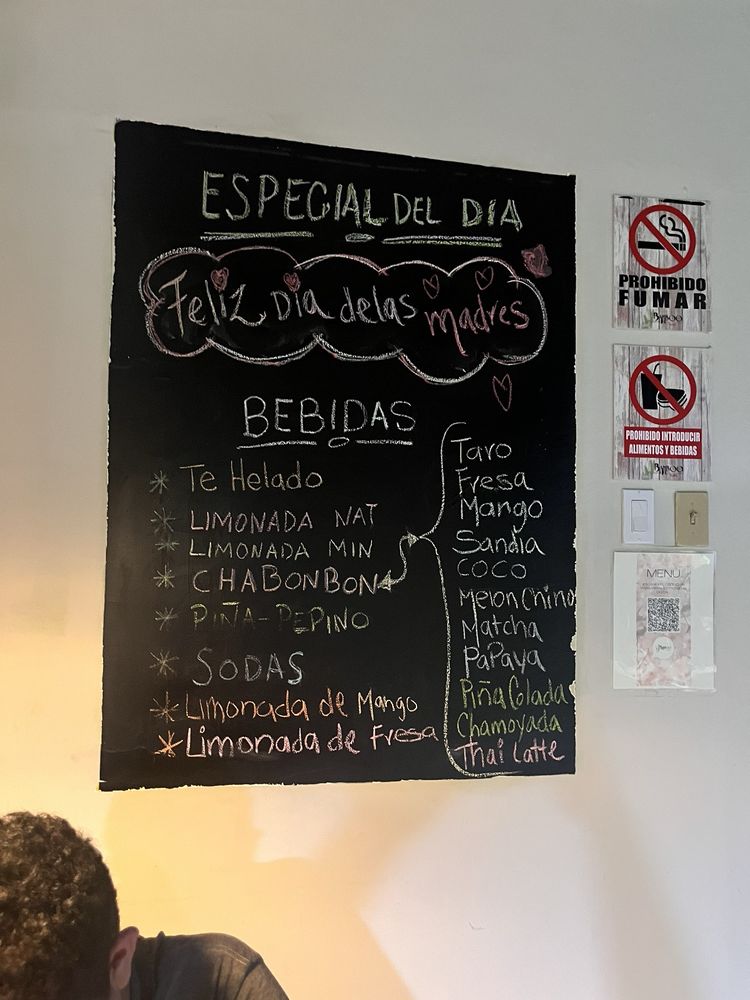 ESPECIAL DEL DIA
Feliz Dia delas madres
BEBIDAS
Te Helado
LIMONADA NAT
LIMONADA MIN
CHABONBON
PIÑA-PEPINO
SODAS
Limonada de Mango
Limonada de Fresa
Taro
Fresa
Mango
Sandia
COCO
Melon Chino
Matcha
Papaya
Piña Colada
Chamoyada
Thai Latte
PROHIBIDO
FUMAR
PROHIBIDO INTRODUCIR
ALIMENTOS Y BEBIDAS
MENU